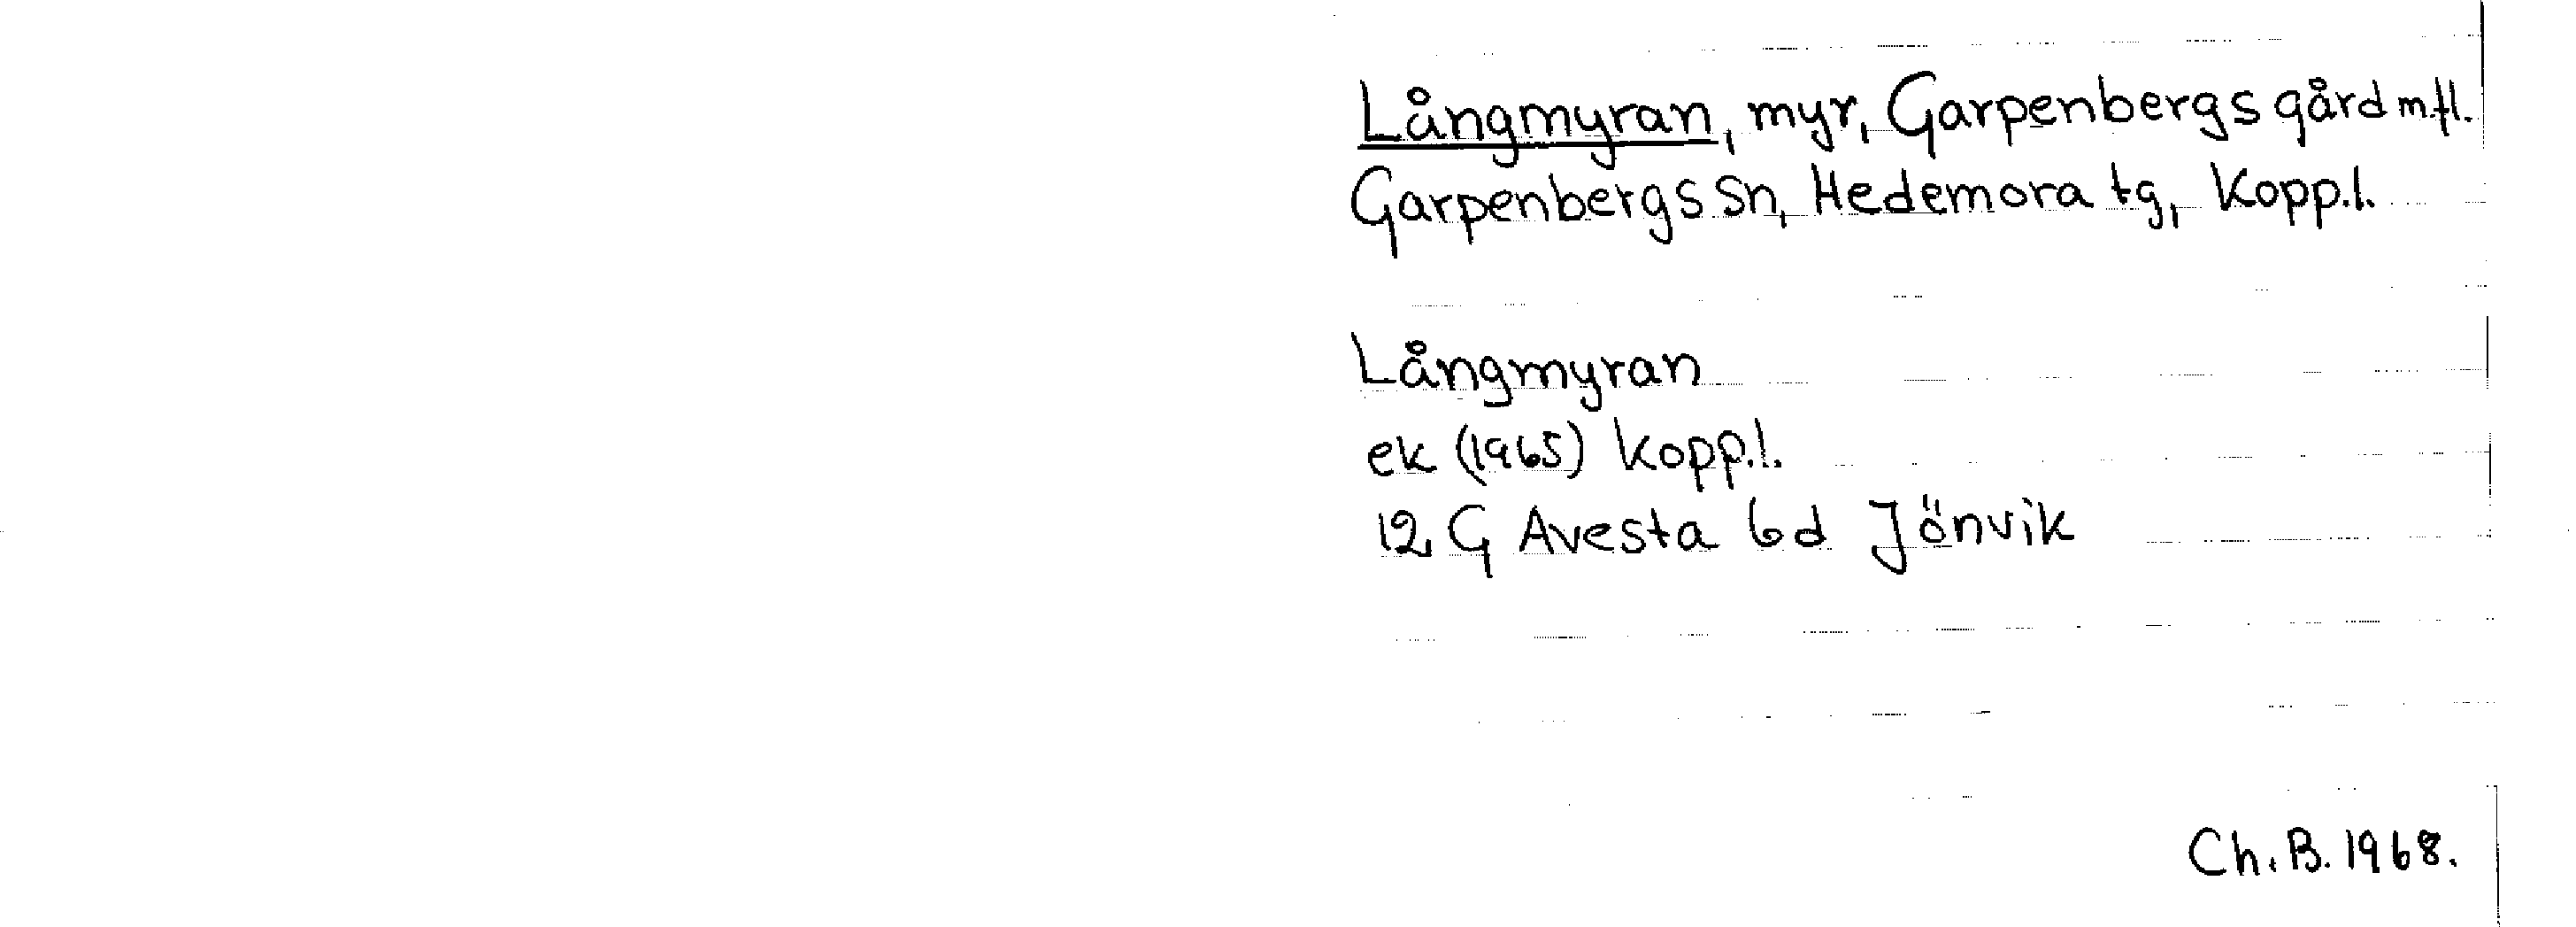 Långmyran, myr, Garpenbergs gård m.fl.
Garpenbergs Sn, Hedemora tg, Kopp.l.
Långmyran
ek (1965) Kopp.l.
12 G Avesta 6d Jönvik
Ch. B. 1968.